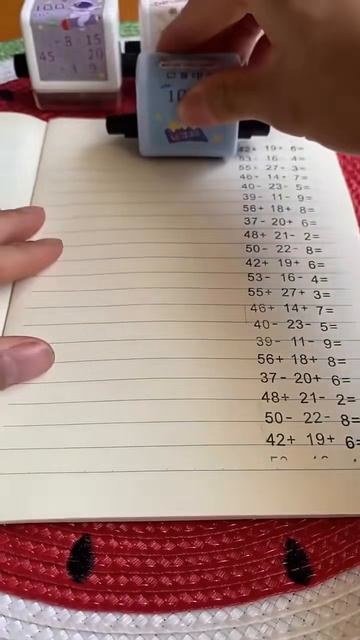 100
-8 15
45 20
10
42+ 19+ 6=
53- 16- 4=
55+ 27+ 3=
46+ 14+ 7=
40- 23- 5=
39- 11- 9=
56+ 18+ 8=
37- 20+ 6=
48+ 21- 2=
50- 22- 8=
42+ 19+ 6=
53- 16- 4=
55+ 27+ 3=
46+ 14+ 7=
40- 23- 5=
39- 11- 9=
56+ 18+ 8=
37- 20+ 6=
48+ 21- 2=
50- 22- 8=
42+ 19+ 6=